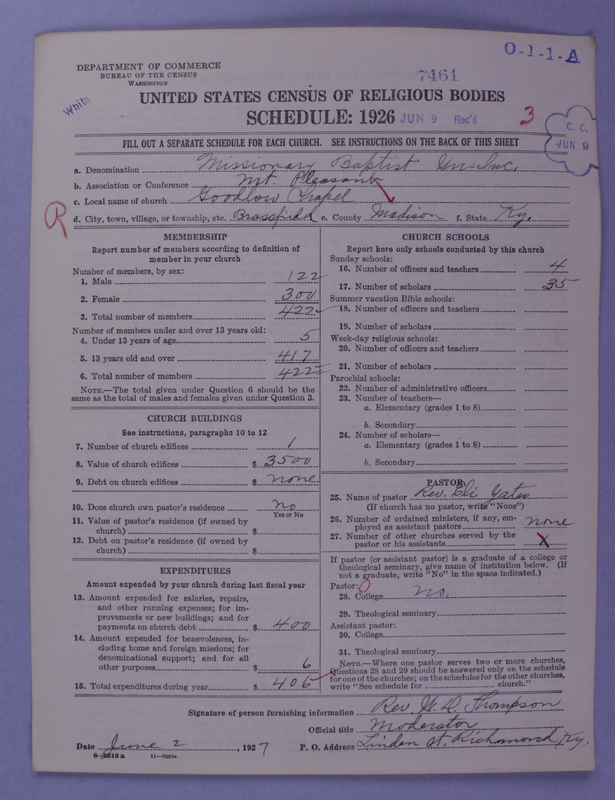 O-1-1-A
DEPARTMENT OF COMMERCE
BUREAU OF THE CENSUS
WASHINGTON
7461
White
UNITED STATES CENSUS OF RELIGIOUS BODIES
SCHEDULE: 1926
JUN 9 Rec'd
3
C. C.
JUN 9
FILL OUT A SEPARATE SCHEDULE FOR EACH CHURCH. SEE INSTRUCTIONS ON THE BACK OF THIS SHEET
a. Denomination Missionary Baptist Un-Inc.
b. Association or Conference Mt. Pleasant
c. Local name of church Goodlow Chapel
R
d. City, town, village, or township, etc. Brassfield e. County Madison f. State Ky.
MEMBERSHIP
Report number of members according to definition of
member in your church
Number of members, by sex:
1. Male 122
2. Female 300
3. Total number of members 422
Number of members under and over 13 years old:
4. Under 13 years of age 5
5. 13 years old and over 417
6. Total number of members 422
NOTE.—The total given under Question 6 should be the
same as the total of males and females given under Question 3.
CHURCH BUILDINGS
See instructions, paragraphs 10 to 12
7. Number of church edifices 1
8. Value of church edifices $ 3500
9. Debt on church edifices $ none
10. Does church own pastor's residence no
Yes or No
11. Value of pastor's residence (if owned by
church) $
12. Debt on pastor's residence (if owned by
church) $
EXPENDITURES
Amount expended by your church during last fiscal year
13. Amount expended for salaries, repairs,
and other running expenses; for im-
provements or new buildings; and for
payments on church debt $ 400
14. Amount expended for benevolences, in-
cluding home and foreign missions; for
denominational support; and for all
other purposes $ 6
15. Total expenditures during year $ 406
CHURCH SCHOOLS
Report here only schools conducted by this church
Sunday schools:
16. Number of officers and teachers 4
17. Number of scholars 35
Summer vacation Bible schools:
18. Number of officers and teachers
19. Number of scholars
Week-day religious schools:
20. Number of officers and teachers
21. Number of scholars
Parochial schools:
22. Number of administrative officers
23. Number of teachers—
a. Elementary (grades 1 to 8)
b. Secondary
24. Number of scholars—
a. Elementary (grades 1 to 8)
b. Secondary
PASTOR
25. Name of pastor Rev. Eli Yates
(If church has no pastor, write "None")
26. Number of ordained ministers, if any, em-
ployed as assistant pastors none
27. Number of other churches served by the
pastor or his assistants x
If pastor (or assistant pastor) is a graduate of a college or
theological seminary, give name of institution below. (If
not a graduate, write "No" in the space indicated.)
Pastor: 0
28. College no.
29. Theological seminary
Assistant pastor:
30. College
31. Theological seminary
NOTE.—Where one pastor serves two or more churches,
Questions 28 and 29 should be answered only on the schedule
for one of the churches; on the schedules for the other churches,
write "See schedule for church."
Signature of person furnishing information Rev. W. D. Thompson
Official title Moderator
Date June 2, 1927 P. O. Address Linden St. Richmond Ky.